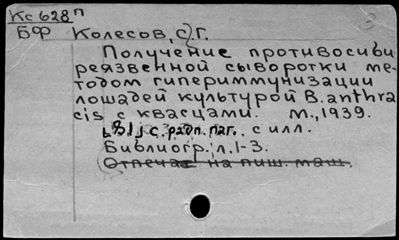 Кс 628п
БФ Колесов, С. Г.
Получение противосиби
реязвенной сыворотки ме-
тодом гипериммунизации
лошадей культурой B. anthra
cis с квасцами. М., 1939.
с разд. паг. с илл.
Библиогр.: л. 1-3.
Отпечат на пиш. маш.
3